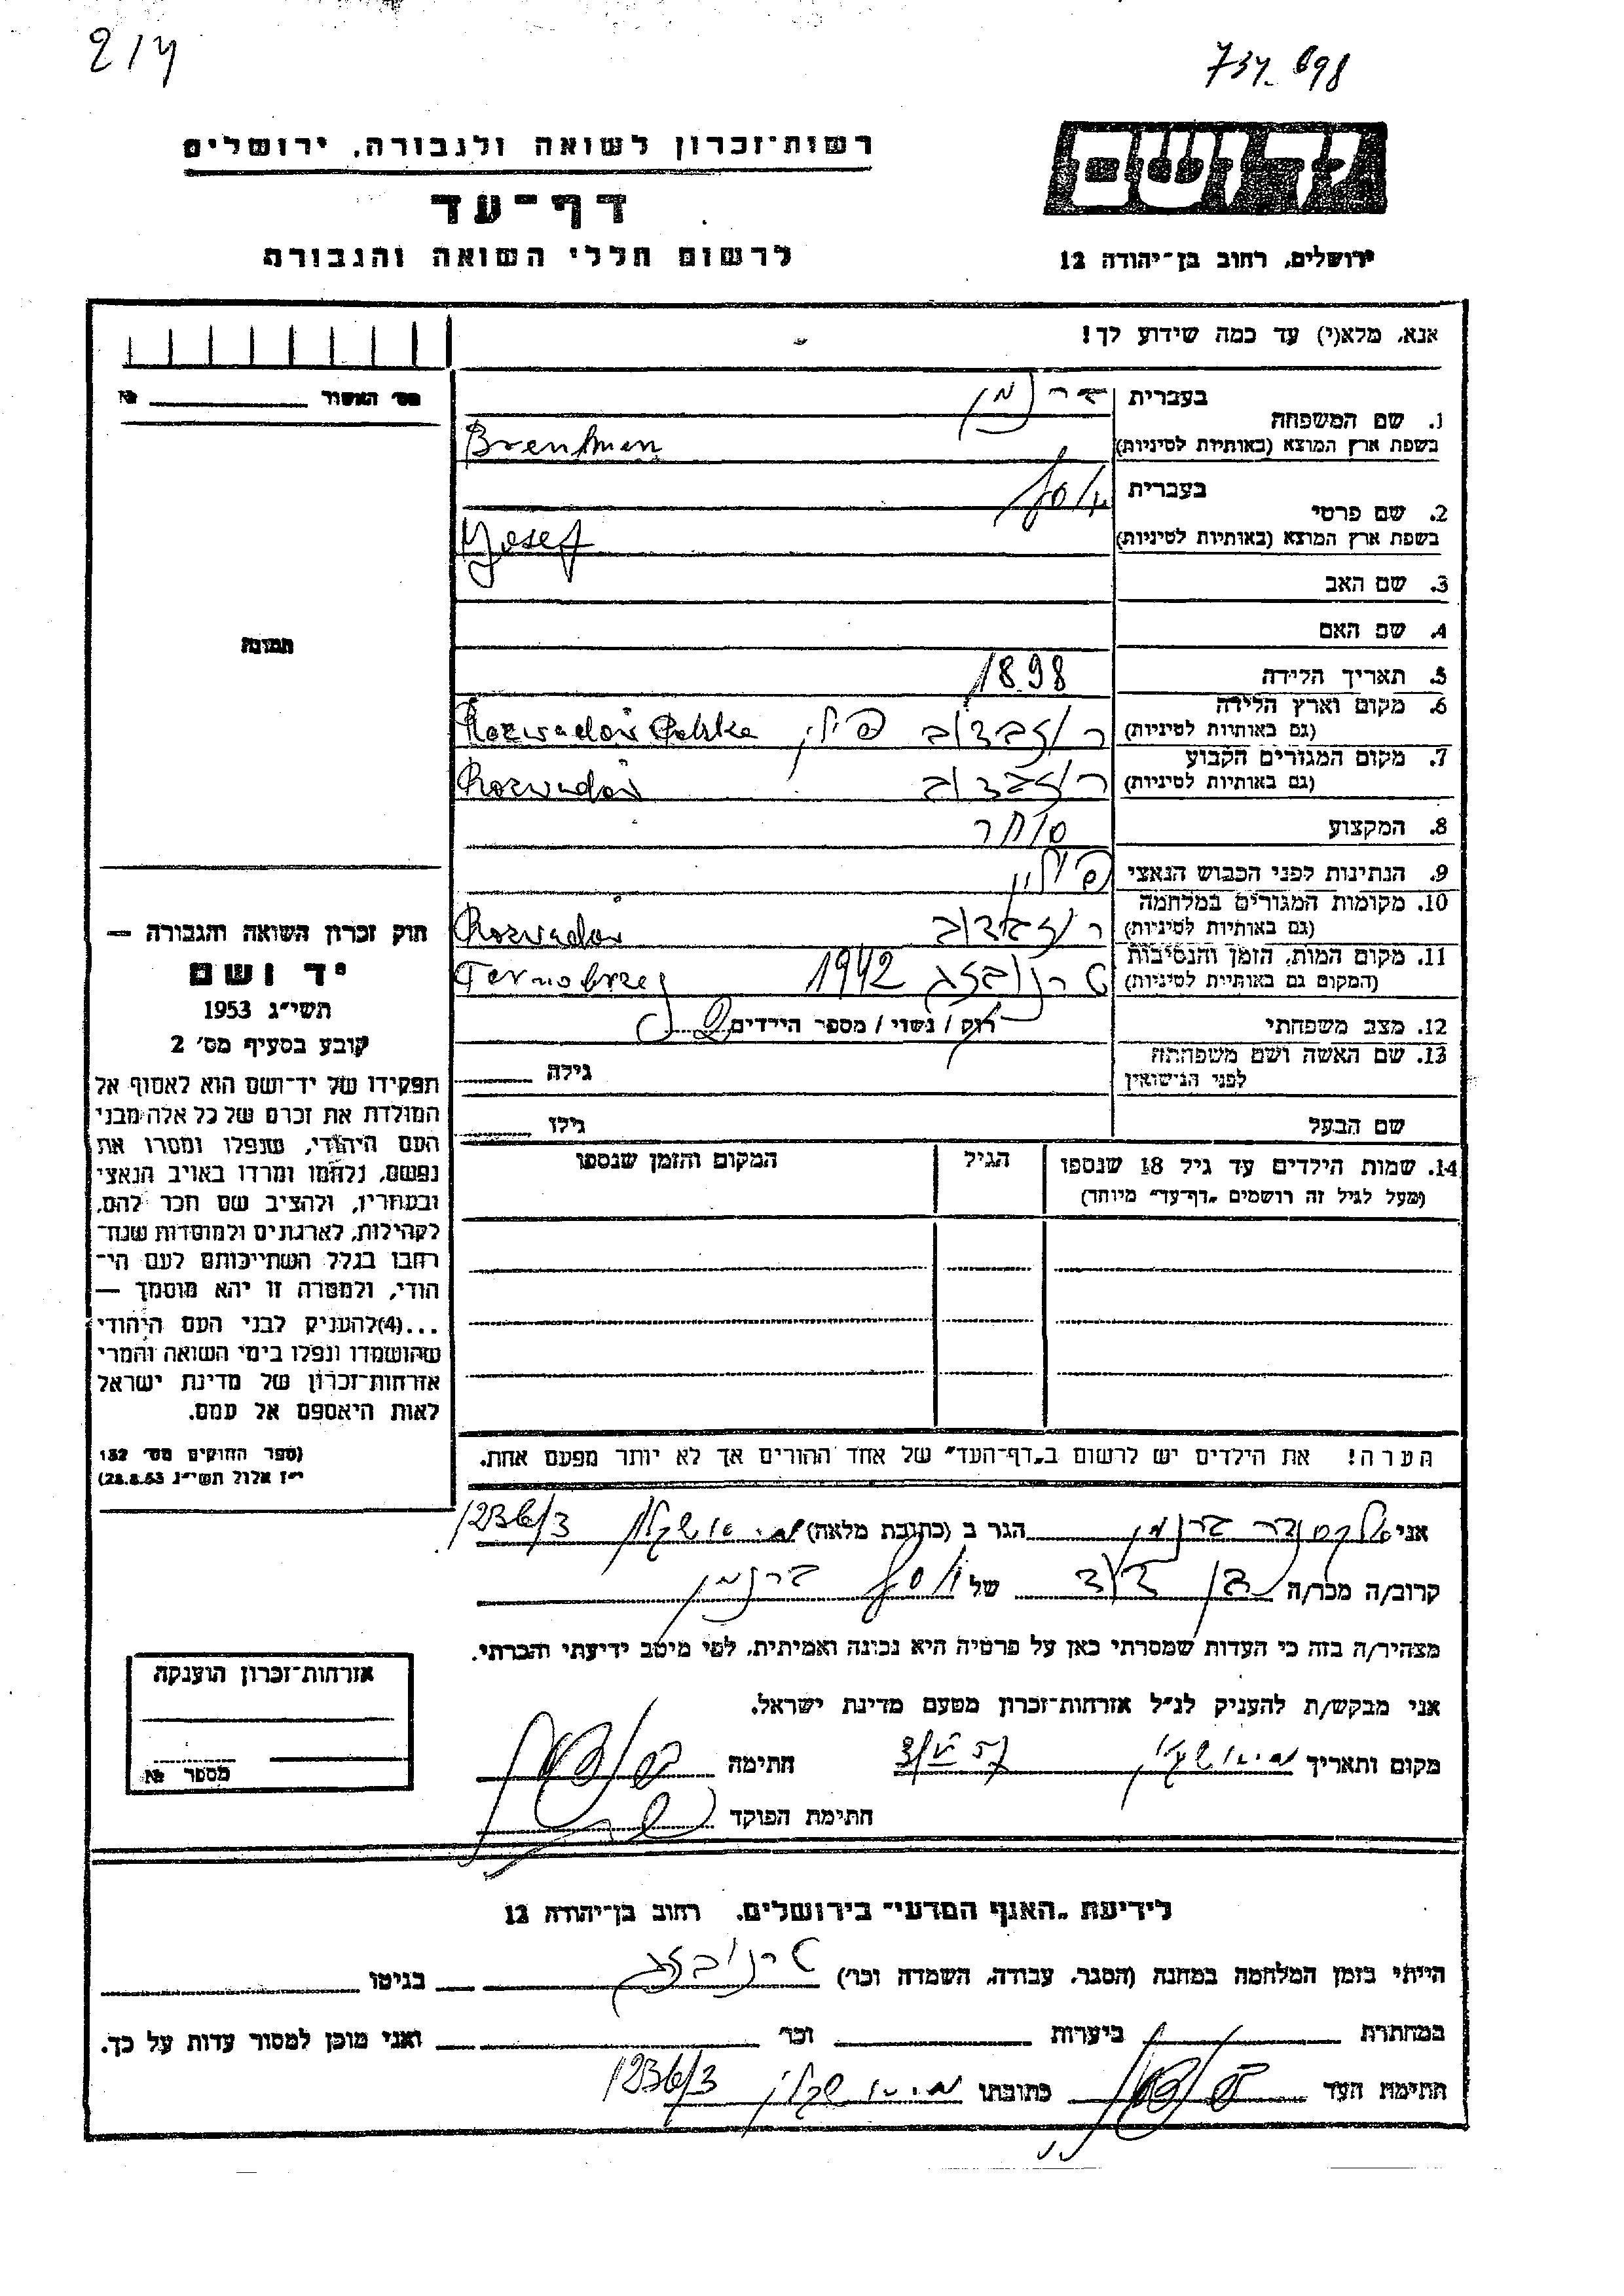 737-698
214
יד ושם
רשות־זכרון לשואה ולגבורה, ירושלים
דף־עד
לרשום חללי השואה והגבורה
ירושלים, רחוב בן־יהודה 12
אנא, מלא(י) עד כמה שידוע לך!
מס' האשור №
1. שם המשפחה בעברית ברנמן
בשפת ארץ המוצא (באותיות לטיניות) Brenmen
2. שם פרטי בעברית יוסף
בשפת ארץ המוצא (באותיות לטיניות) Josef
3. שם האב
4. שם האם
תמונה
5. תאריך הלידה 1898
6. מקום וארץ הלידה רוזבדוב פולין Rozwadów Polska
(גם באותיות לטיניות)
7. מקום המגורים הקבוע רוזבדוב Rozwadów
(גם באותיות לטיניות)
8. המקצוע סוחר
9. הנתינות לפני הכבוש הנאצי פולין
10. מקומות המגורים במלחמה רוזבדוב Rozwadów
(גם באותיות לטיניות)
11. מקום המות, הזמן והנסיבות טרנובזג 1942 Ternobrzeg
(המקום גם באותיות לטיניות)
12. מצב משפחתי רוק / נשוי / מספר הילדים 2
13. שם האשה ושם משפחתה גילה
לפני הנישואין
שם הבעל גילו
14. שמות הילדים עד גיל 18 שנספו הגיל המקום והזמן שנספו
(מעל לגיל זה רושמים "דף־עד" מיוחד)
הערה! את הילדים יש לרשום ב"דף־העד" של אחד ההורים אך לא יותר מפעם אחת.
חוק זכרון השואה והגבורה —
יד ושם
תשי"ג 1953
קובע בסעיף מס' 2
תפקידו של יד־ושם הוא לאסוף אל
המולדת את זכרם של כל אלה מבני
העם היהודי, שנפלו ומסרו את
נפשם, נלחמו ומרדו באויב הנאצי
ובעוזריו, ולהציב שם וזכר להם,
לקהילות, לארגונים ולמוסדות שנח־
רבו בגלל השתייכותם לעם הי־
הודי, ולמטרה זו יהא מוסמך —
...(4)להעניק לבני העם היהודי
שהושמדו ונפלו בימי השואה והמרי
אזרחות־זכרון של מדינת ישראל
לאות היאספם אל עמם.
(ספר החוקים מס' 132
י"ז אלול תשי"ג 28.8.53)
אני אלכסנדר ברנמן הגר ב (כתובת מלאה) אשקלון 1236/3
קרוב/ה מכר/ה בן דוד של יוסף ברנמן
מצהיר/ה בזה כי העדות שמסרתי כאן על פרטיה היא נכונה ואמיתית, לפי מיטב ידיעתי והכרתי.
אני מבקש/ת להעניק לנ"ל אזרחות־זכרון מטעם מדינת ישראל.
מקום ותאריך אשקלון חתימה
חתימת הפוקד
אזרחות־זכרון הוענקה
מספר №
לידיעת "האגף המדעי" בירושלים, רחוב בן־יהודה 12
הייתי בזמן המלחמה במחנה (הסגר, עבודה, השמדה וכו') טרנובזג בגיטו
במחתרת ביערות וכו' ואני מוכן למסור עדות על כך.
חתימת העד כתובתו אשקלון 1236/3